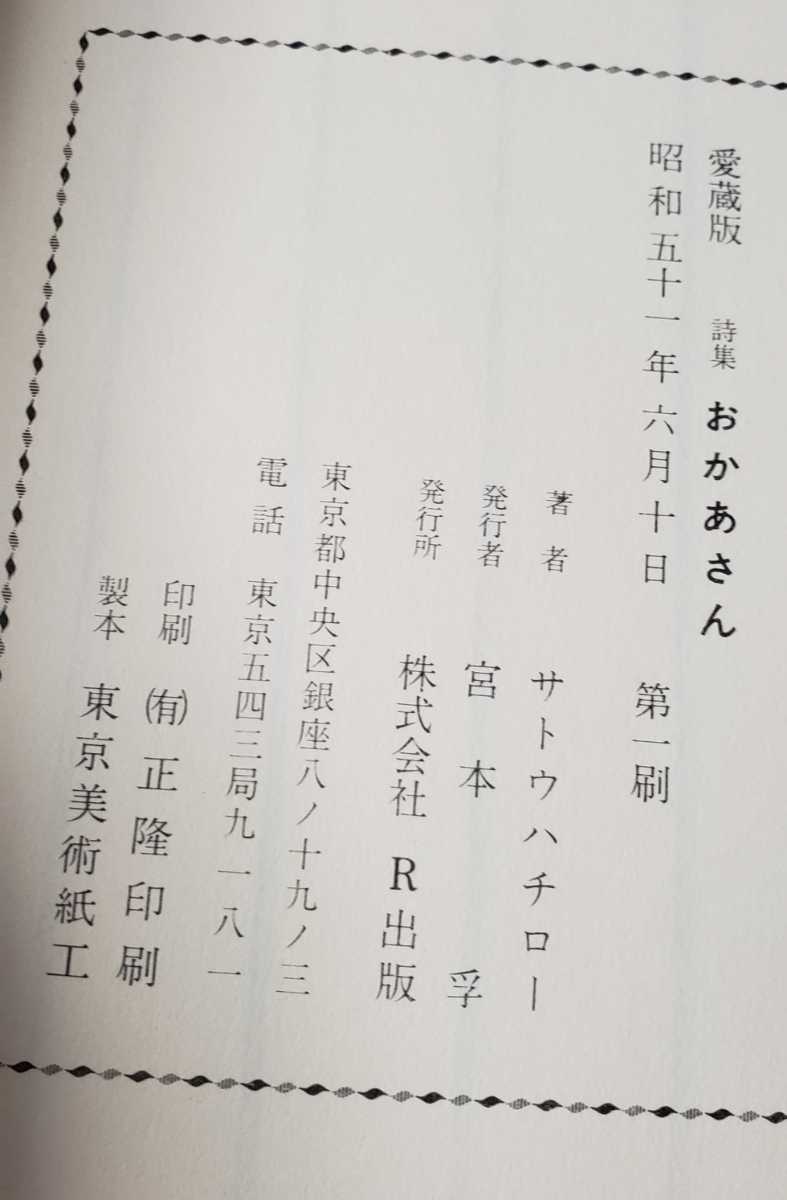 愛蔵版 詩集 おかあさん
昭和五十一年六月十日 第一刷
著者 サトウハチロー
発行者 宮本孚
発行所 株式会社 R出版
東京都中央区銀座八ノ十九ノ三
電話 東京五四三局九一八一
印刷 ㈲正隆印刷
製本 東京美術紙工